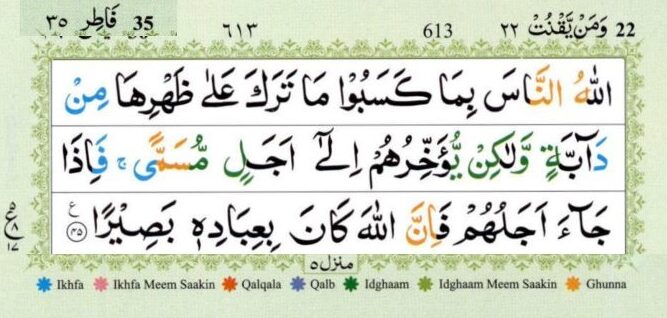 35 فَاطِر ٣٥ 613 ٦١٣ 22 وَمَنْ يَّقْنُتْ ٢٢
اللّٰهُ النَّاسَ بِمَا كَسَبُوْا مَا تَرَكَ عَلٰى ظَهْرِهَا مِنْ
دَآبَّةٍ وَّلٰكِنْ يُّؤَخِّرُهُمْ اِلٰٓى اَجَلٍ مُّسَمًّى ۚ فَاِذَا
جَآءَ اَجَلُهُمْ فَاِنَّ اللّٰهَ كَانَ بِعِبَادِهٖ بَصِيْرًا ع ٤٥
ع ٨ ١٧
منزل ٥
Ikhfa Ikhfa Meem Saakin Qalqala Qalb Idghaam Idghaam Meem Saakin Ghunna